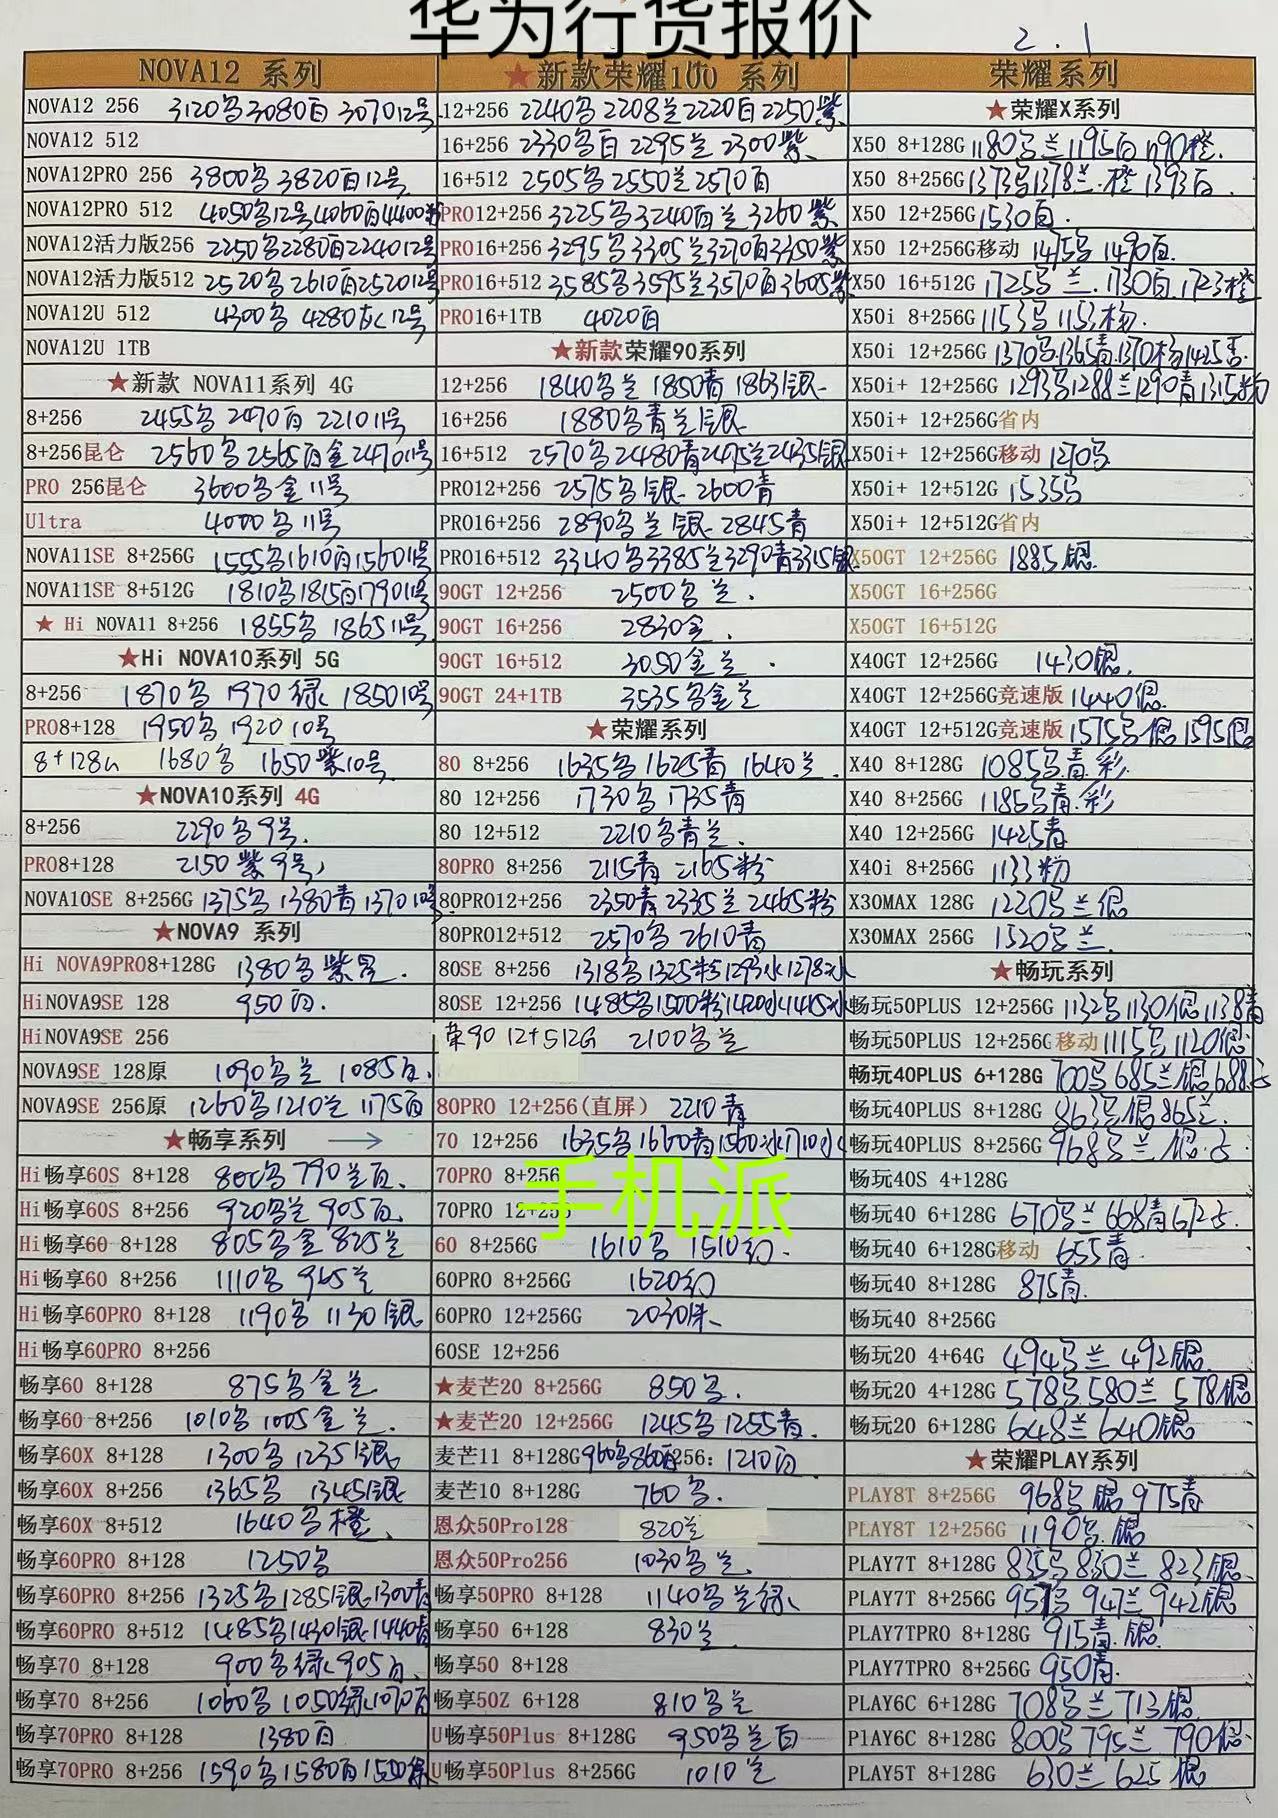 华为行货报价
2.1
NOVA12 系列
NOVA12 256 3120名3080百307012号
NOVA12 512
NOVA12PRO 256 3800名3820百12号
NOVA12PRO 512 4050名12号4060百4400粉
NOVA12活力版256 2250名2280百224012号
NOVA12活力版512 2520名2610百252012号
NOVA12U 512 4300名 4280灰12号
NOVA12U 1TB
★新款 NOVA11系列 4G
8+256 2455名 2470百 221011号
8+256昆仑 2560名2565百金247011号
PRO 256昆仑 3600名金11号
Ultra 4000名11号
NOVA11SE 8+256G 1555名1610百156011号
NOVA11SE 8+512G 1810名1815百179011号
★ Hi NOVA11 8+256 1855名 186511号
★Hi NOVA10系列 5G
8+256 1870名 1970绿 185010号
PRO8+128 1950名 1920 10号
8+128G 1680名 1650紫10号
★NOVA10系列 4G
8+256 2290名9号
PRO8+128 2150紫9号
NOVA10SE 8+256G 1375名1380青137010号
★NOVA9 系列
Hi NOVA9PRO8+128G 1380名紫
HiNOVA9SE 128 950百.
HiNOVA9SE 256
NOVA9SE 128原 1090名兰 1085百.
NOVA9SE 256原 1260名1210兰 1175百
★畅享系列 →
Hi畅享60S 8+128 800名790兰百
Hi畅享60S 8+256 920名兰 905百
Hi畅享60 8+128 805名金 825兰
Hi畅享60 8+256 1110名 965兰
Hi畅享60PRO 8+128 1190名 1130银
Hi畅享60PRO 8+256
畅享60 8+128 875名金兰
畅享60 8+256 1010名1005金兰.
畅享60X 8+128 1300名1235银
畅享60X 8+256 1365名 1345银
畅享60X 8+512 1640名橙
畅享60PRO 8+128 1250名
畅享60PRO 8+256 1325名1285银1300青
畅享60PRO 8+512 1485名1430银1440青
畅享70 8+128 900名绿905百
畅享70 8+256 1060名1050绿1070百
畅享70PRO 8+128 1380百
畅享70PRO 8+256 1590名1580百1550绿
★新款荣耀100 系列
12+256 2240名2208兰2220百2250紫
16+256 2330名百2295兰2300紫
16+512 2505名2550兰2570百
PRO12+256 3225名3240百兰3260紫
PRO16+256 3295名3305兰3270百3350紫
PRO16+512 3585名3595兰3570百3605紫
PRO16+1TB 4020百
★新款荣耀90系列
12+256 1840名兰 1850青 1863银
16+256 1880名青兰银
16+512 2570名2480青2475兰2435银
PRO12+256 2575名银 2600青
PRO16+256 2890名兰银 2845青
PRO16+512 3340名3385兰3290青3315银
90GT 12+256 2500名兰.
90GT 16+256 2830金.
90GT 16+512 3050金兰.
90GT 24+1TB 3535名金兰
★荣耀系列
80 8+256 1635名1625青1640兰.
80 12+256 1730名1735青
80 12+512 2210名青兰.
80PRO 8+256 2115青 2165粉
80PRO12+256 2350青2335兰2465粉
80PRO12+512 2570名2610青
80SE 8+256 1318名1325粉1293水1278冰
80SE 12+256 1485名1500粉1420冰1445水
荣90 12+512G 2100名兰
80PRO 12+256(直屏) 2210青
70 12+256 1635名1660青1560冰1710水
手机派
70PRO 8+256
70PRO 12+256
60 8+256G 1610名 1510幻.
60PRO 8+256G 1620幻
60PRO 12+256G 2030
60SE 12+256
★麦芒20 8+256G 850名.
★麦芒20 12+256G 1245名1255青.
麦芒11 8+128G960名860百256: 1210百
麦芒10 8+128G 760名.
恩众50Pro128 820兰
恩众50Pro256 1030名兰.
畅享50PRO 8+128 1140名兰绿
畅享50 6+128 830兰
畅享50 8+128
畅享50Z 6+128 810名兰
U畅享50Plus 8+128G 950名兰百
U畅享50Plus 8+256G 1010兰
荣耀系列
★荣耀X系列
X50 8+128G 1180名兰1195百1190橙.
X50 8+256G 1373名1378兰.橙1393百.
X50 12+256G 1530百.
X50 12+256G移动 1475名1490百
X50 16+512G 1725名兰.1730百.1723橙
X50i 8+256G 1153名 1153杨.
X50i 12+256G 1370名.1365青.1370杨1425
X50i+ 12+256G 1293名1288兰1290青1315粉
X50i+ 12+256G省内
X50i+ 12+256G移动 1270名
X50i+ 12+512G 1535名
X50i+ 12+512G省内
X50GT 12+256G 1885银.
X50GT 16+256G
X50GT 16+512G
X40GT 12+256G 1430银.
X40GT 12+256G竞速版 1440银
X40GT 12+512G竞速版 1575名银1595银
X40 8+128G 1085名青.彩.
X40 8+256G 1185名青.彩
X40 12+256G 1425青
X40i 8+256G 1133粉
X30MAX 128G 1220名兰银
X30MAX 256G 1520名兰.
★畅玩系列
畅玩50PLUS 12+256G 1132名1130银1138青
畅玩50PLUS 12+256G移动 1115名1120银
畅玩40PLUS 6+128G 700名685兰银688
畅玩40PLUS 8+128G 863名银865兰
畅玩40PLUS 8+256G 968名兰银
畅玩40S 4+128G
畅玩40 6+128G 670名兰668青672
畅玩40 6+128G移动 655青.
畅玩40 8+128G 875青.
畅玩40 8+256G
畅玩20 4+64G 494名兰 492银.
畅玩20 4+128G 578名580兰 578银
畅玩20 6+128G 648兰640银
★荣耀PLAY系列
PLAY8T 8+256G 968名银975青
PLAY8T 12+256G 1190名.银
PLAY7T 8+128G 835名830兰 823银.
PLAY7T 8+256G 957名 947兰942银
PLAY7TPRO 8+128G 915青.银
PLAY7TPRO 8+256G 950青.
PLAY6C 6+128G 708名兰713银
PlAY6C 8+128G 800名795兰790银.
PLAY5T 8+128G 630兰 625银